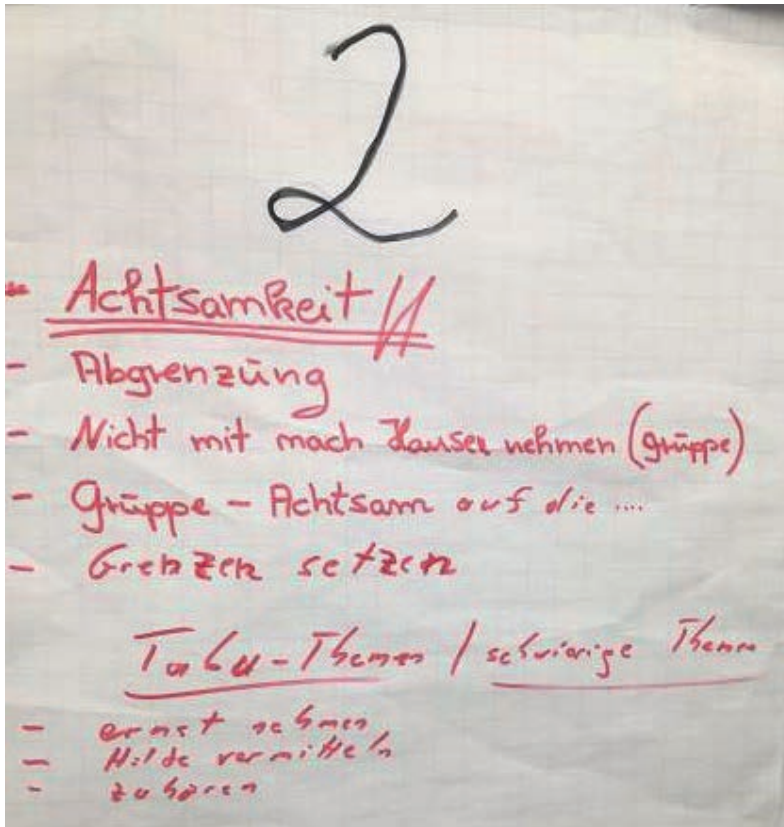 2
- Achtsamkeit!!
- Abgrenzung
- Nicht mit mach Hauser nehmen (grüppe)
- Grüppe - Achtsam auf die ....
- Grenzen setzen
Tabu-Themen / schwierige Themen
- ernst nehmen
- Hilde vermitteln
- zuhören